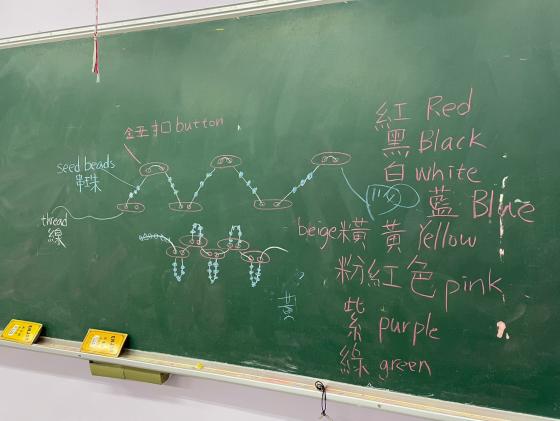 鈕扣 button
seed beads
串珠
thread
線
紅 Red
黑 Black
白 white
藍 Blue
beige 米黃 黃 Yellow
粉紅色 pink
紫 purple
綠 green
黃